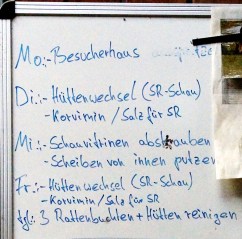 Mo.:-Besucherhaus
Di.:- Hüttenwechsel (SR-Schau)
- Korvimin / Salz für SR
Mi.:- Schauvitrinen abstauben
- Scheiben von innen putzen
Fr.:- Hüttenwechsel (SR-Schau)
- Korvimin / Salz für SR
tgl.: 3 Rattenbuchten + Hütten reinigen